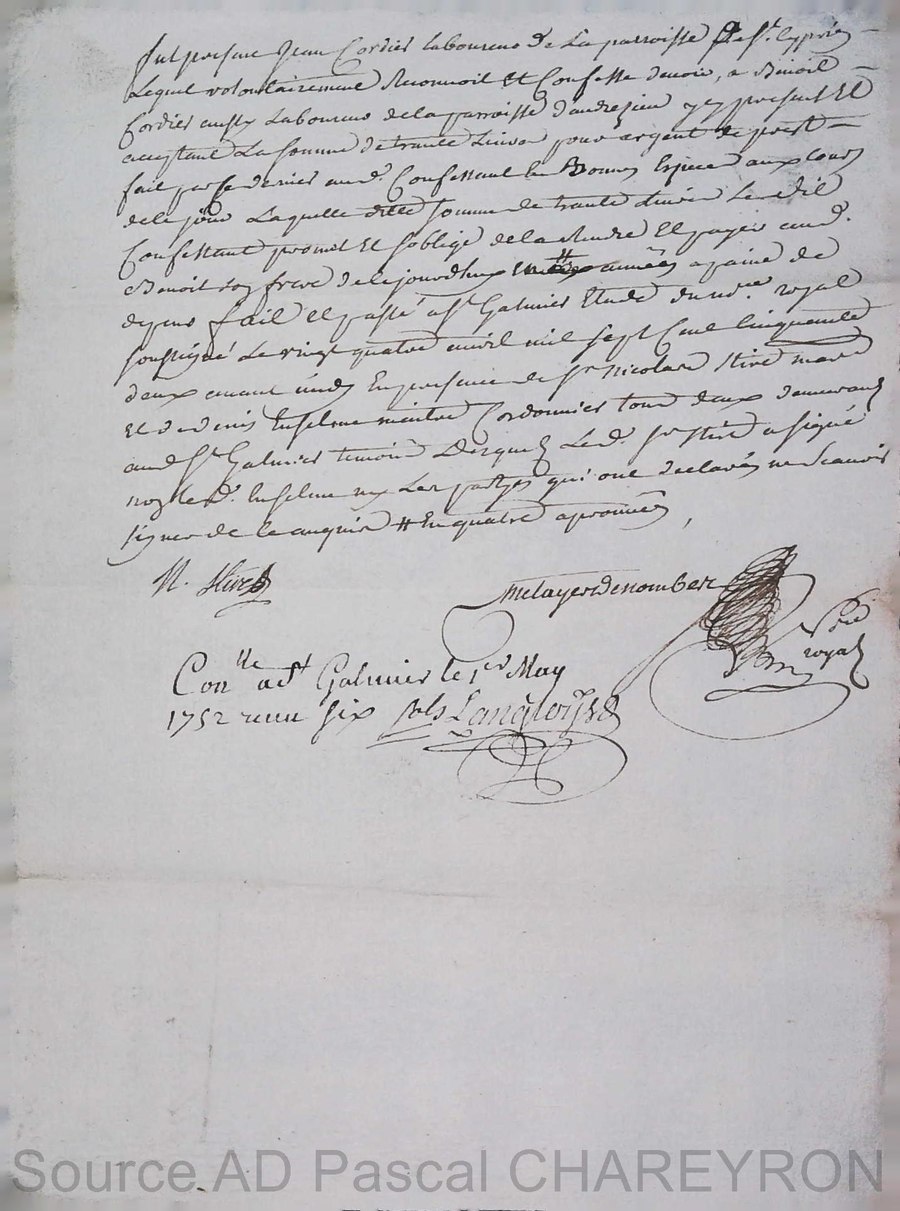 fut présent Jean Cordier laboureur de La parroisse de St. Cyprien
Lequel volontairement Reconnoit Et Confesse devoir, a Benoit
Cordier aussy Laboureur de la parroisse d'andrezieu yci present Et
acceptant La somme de trante Livres pour argent de prest
fait par ce dernier aud. Confessant En Bonnes Espece aux cours
de ce jour Laquelle ditte somme de trante Livres Le dit
Confessant promet Et s'oblige de la Rendre Et payer aud.
Benoit son frere de ce jourdhuy # années a paine de
depens fait Et passé a St. Galmier Etude du nore. royal
soussigné Le vingt quatre avril mil sept Cent Cinquante
deux avant midy En presence de Sr. Nicolas Hivé
Et de denis Enselme maitre Cordonnier tous deux demeurant
aud St. Galmier temoins Desquels Led. Sr. Hivé a signé
non led. Enselme ny Les parties qui ont declarés ne scavoir
signer de ce enquis # En quatre aprouvés
N. Hivé
metayer Denombez
Nore
royal
Conlle a St Galmier le 1er May
1752 reçu six sols Langloys
Source AD Pascal CHAREYRON